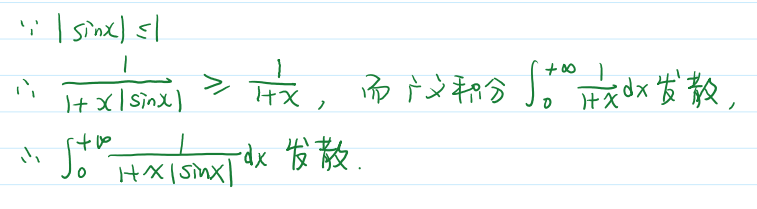 ∵ |sinx| ≤ 1
∴ 1/(1+x|sinx|) ≥ 1/(1+x) , 而广义积分 ∫₀^{+∞} 1/(1+x) dx 发散,
∴ ∫₀^{+∞} 1/(1+x|sinx|) dx 发散.